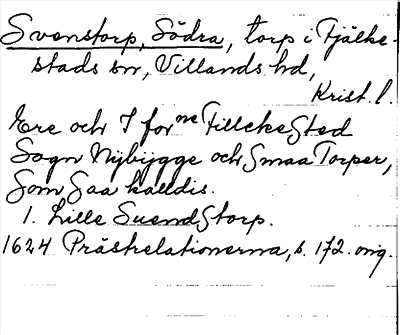 Svenstorp, Södra, torp i Fjälke-
stads sn, Villands hd,
Krist. l.
Ere och I for ne FillckeSted
Sogn Nÿbÿgge och Smaa Torper,
Som Saa kaldis.
1. Lille SuendStorp.
1624 Prästrelationerna, s. 172. orig.